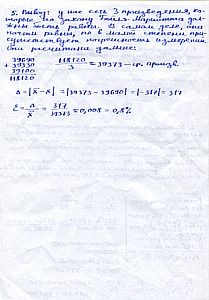 5. Вывод: у нас есть 3 произведения, ко-
торые по закону Бойля-Мариотта дол-
жны быть равны. В самом деле, они
почти равны, но в малой степени при-
сутствует погрешность измерений
Они расчитаны дальше:
39690
+ 39330
39100
118120
118120 / 3 = 39373 - ср. произв.
Δ = |x̄ - x| = |39373 - 39690| = |-317| = 317
ε = Δ / x̄ = 317 / 39373 = 0,008 = 0,8%